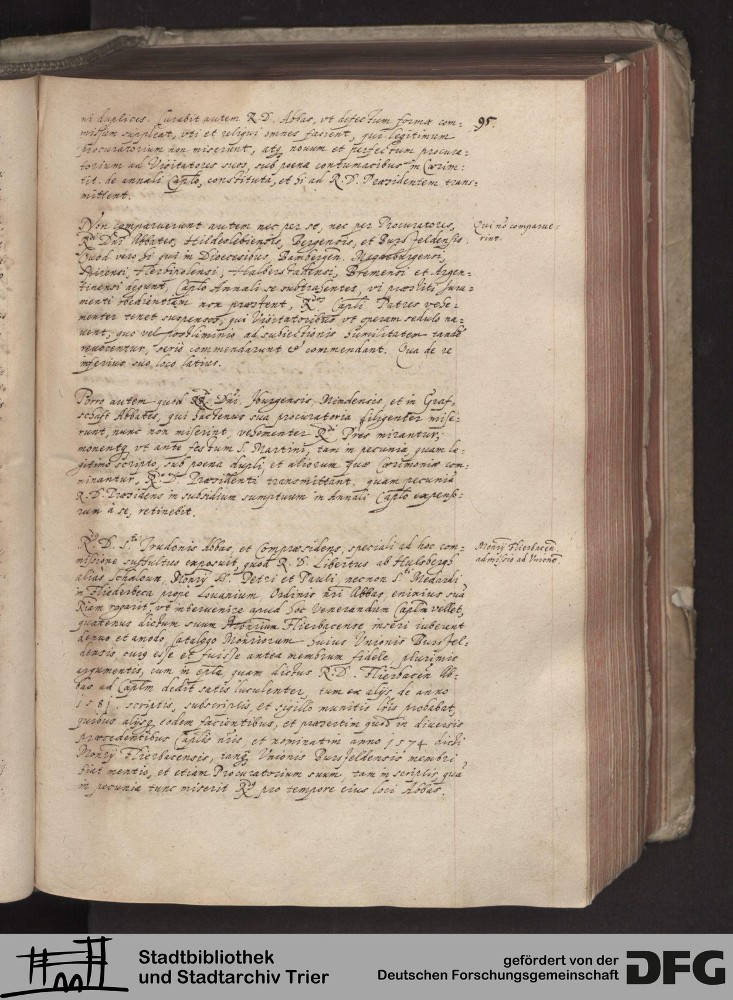 95.
ni duplices. Curabit autem R. D. Abbas, vt defectum formæ com=
missum suppleat, vti et reliqui omnes facient, qui legitimum
procuratorium non miserunt, atq, nouum et perfectum procura=
torium ad Visitatores suos, sub poena contumacibus in Cærim:
tit. de annali Caplo, constituta, et hi ad R. D. Præsidentem trans=
mittent.
Non comparuerunt autem nec per se, nec per Procuratores,
Rdi Dni Abbates, Hildeslebiensis, Bergensis, et Bursfeldensis.
Quod vero hi qui in Dioecesibus, Bambergen. Magdeburgensi,
Spirensi, Herbipolensi, Halberstadensi, Bremensi et Argen=
tinensi degunt, Caplo Annali se subtrahentes, vi præstiti iura=
menti obedientiam non præstent, Rdos Capli Patres vehe=
menter tenet suspensos, qui Visitatoribus vt operam sedulo na=
uent, quo vel postliminio ad subiectionis humilitatem tandē
reuocentur, serio commendarunt et commendant. Qua de re
inferius suo loco latius.
Qui nō comparue=
rint.
Porro autem quod RR. Dni Iburgensis, Mindensis, et in Graf=
schaft Abbates, qui hactenus sua procuratoria diligenter mise=
runt, nunc non miserint, vehementer Rdi Pres mirantur,
monentq, vt ante festum S. Martini, tam in pecunia, quam le=
gitimo scripto, sub poena dupli, et aliorum quæ Cærimoniæ com=
minantur, Rdo D. Præsidenti transmittant, quam pecuniā
R. D. Præsidens in subsidium sumptuum in Annali Caplo expenso=
rum à se, retinebit.
Rdus D. Sti Trudonis Abbas, et Compræsidens, speciali ad hoc com=
missione suffultus exposuit, quod R. D. Libertus ab Hulsbergh
alias Schaloun, Monrij SS. Petri et Pauli, necnon Sti Medardi
in Fliederbeca prope Louanium Ordinis nri Abbas, enixius suā
Rtiam rogarit, vt interuenire apud hoc Venerandum Caplm vellet,
quatenus dictum suum Monrium Flierbacense inseri iuberent
denuo et amodo, Catalogo Monriorum huius Vnionis Bursfel=
densis, cuiq esse et fuisse antea membrum fidele, plurimis
argumentis, cum in epla, quam dictus R. D. Flierbacen Ab=
bas ad Caplm dedit satis luculenter, tum ex alijs de anno
1581. scriptis, subscriptis, et sigillo munitis lris probabat,
quibus alijsq, eodem facientibus, et præsertim quòd in diuersis
præcedentibus Caplis nris, et nominatim anno 1574 dicti
Monrij Flierbacensis, tanq, Vnionis Bursfeldensis membri
fiat mentio, et etiam Procuratorium suum, tam in scriptis, quā
in pecunia tunc miserit Rdus pro tempore eius loci Abbas.
Monrij Flierbacen.
admissio ad Vnionē.
Stadtbibliothek
und Stadtarchiv Trier
gefördert von der
Deutschen Forschungsgemeinschaft
DFG